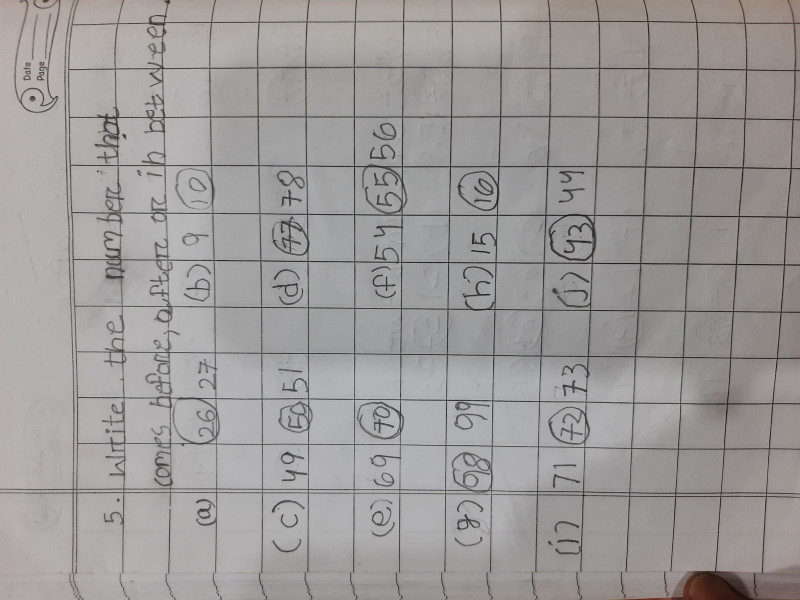 Date
Page
5. Write the number that
comes before, after or in between.
(a) 26 27 (b) 9 10
(c) 49 50 51 (d) 77 78
(e) 69 70 (f) 54 55 56
(g) 98 99 (h) 15 16
(i) 71 72 73 (j) 43 44